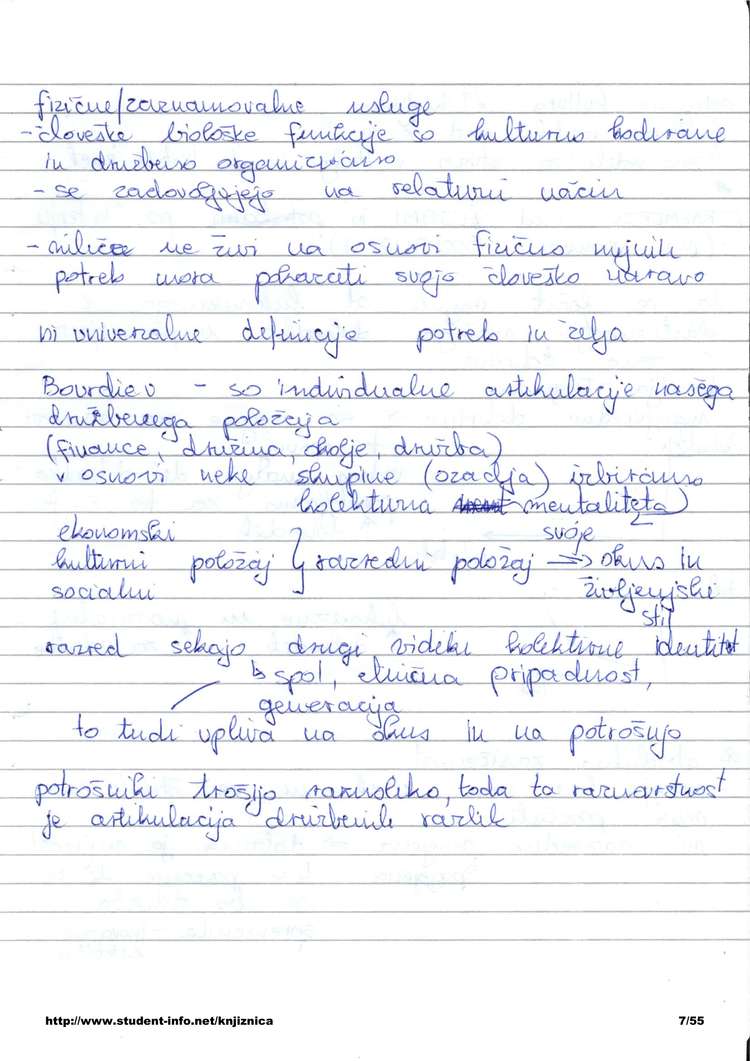 fizične/zaznamovalne usluge
- človeške biološke funkcije so kulturno kodirane
in družbeno organizirano
- se zadovoljujejo na relativni način
- nihče ne živi na osnovi fizično nujnih
potreb mora pokazati svojo človeško naravo
ni univerzalne definicije potreb in želja
Bourdieu - so individualne artikulacije našega
družbenega položaja
(finance, družina, okolje, družba)
v osnovi neke skupine (ozadja) izbiramo
kolektivna mentaliteta)
ekonomski svoje
kulturni položaj } razredni položaj => okus in
socialni življenjski
stil
razred sekajo drugi vidiki kolektivne identitet
↳ spol, etnična pripadnost,
generacija
to tudi vpliva na okus in na potrošnjo
potrošniki trošijo raznoliko, toda ta raznovrstnost
je artikulacija družbenih razlik
http://www.student-info.net/knjiznica 7/55